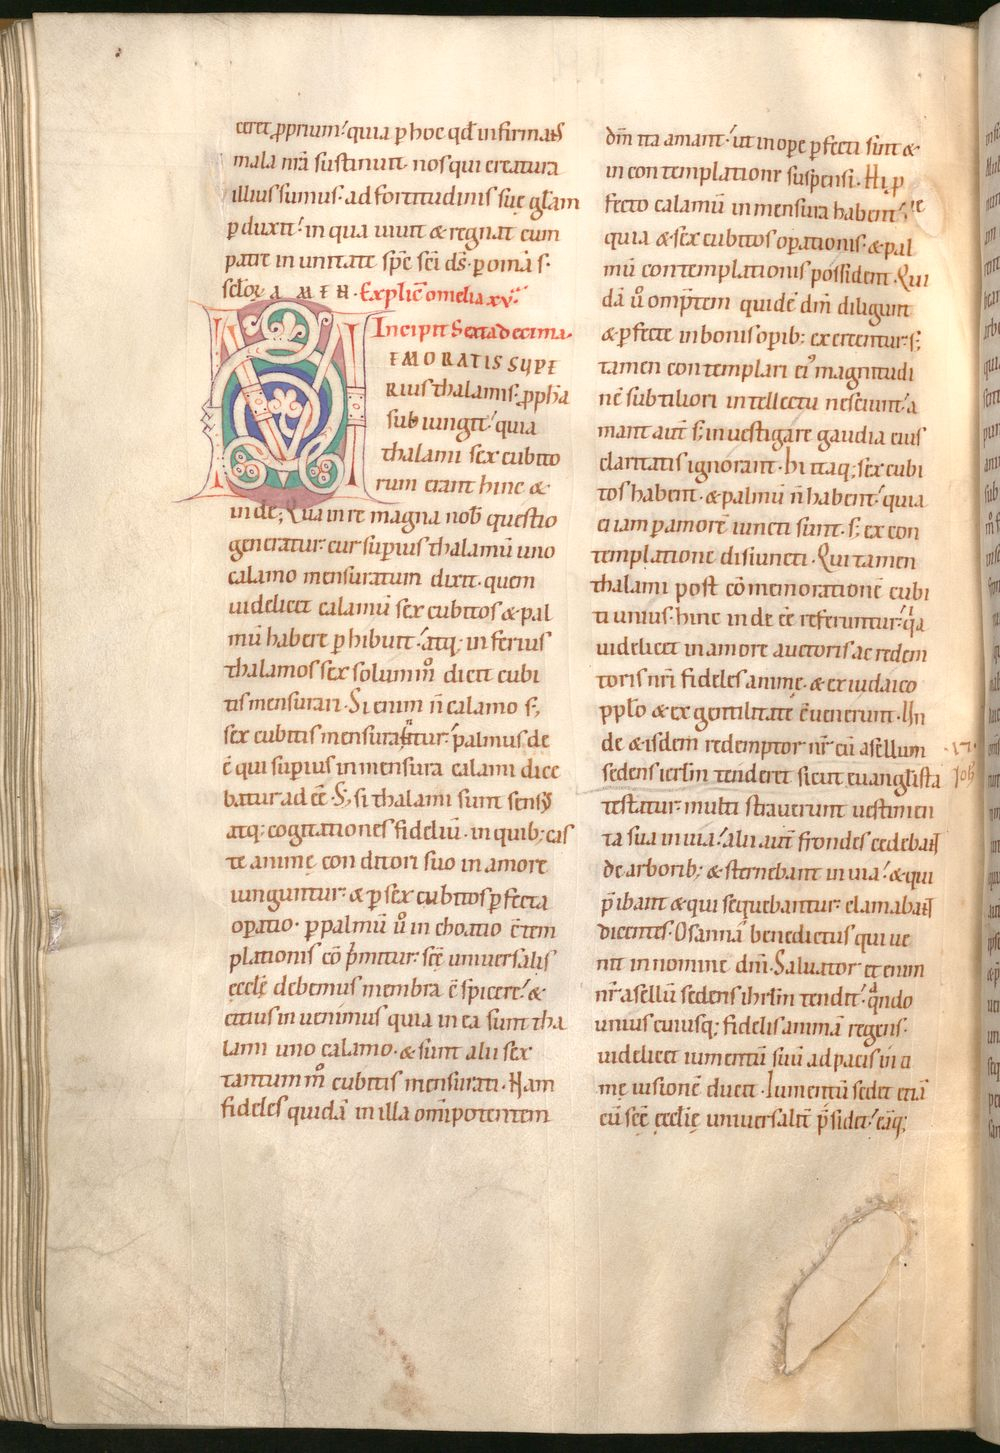 ceret ꝓprium᷎ quia ꝑ hoc qd̄ infirmatˢ
mala nr̄a sustinuit. nos qui creatura
illius sumus. ad fortitudinis suę gl̄am
ꝑduxit᷎ in qua uiuit & regnat cum
patre in unitate sp̄c sc̄i ds̄. ꝑ om̄a s̄.
sclo̢ꝝ AMEN. Explic̄ omelia xv.
Incipit Sextadecima.
MEMORATIS SUPE
RIUS thalamis. ꝓph̄a
subiungit᷎ quia
thalami sex cubito
rum erant hinc &
inde; Qua in re magna nob̄ questio
generatur. cur superius thalamū uno
calamo mensuratum dixit. quem
uidelicet calamū sex cubitos & pal
mū habere ꝑhibuit᷎ atq; inferius
thalamos sex solummͦ dicit cubi
tis mensurari. Si enim n̄ calamo s;
sex cubitis mensurantur᷎ palmus de
ē qui supius in mensura calami dice
batur adēē. S; si thalami sunt sensꝰ
atq; cogitationes fideliū. in quib; cas
te animę conditori suo in amore
iunguntur. & ꝑ sex cubitos ꝑfecta
oꝑatio. ꝑ palmū u̓o inchoatio c̄tem
plationis exp̄mitur. scē uniuersalis
ęcclę debemus membra c̄spicere᷎ &
citius inuenimus quia in ea sunt tha
lami uno calamo. & sunt alii sex
tantummͦ cubitis mensurati. Nam
fideles quidā in illa om̄ipotentem
dm̄ ita amant᷎ ut in oꝑe ꝑfecti sint &
in contemplatione suspensi. Hi ꝑ
fecto calamū in mensura habent᷎
quia & sex cubitos oꝑationis. & pal
mū contemplationis possident. Qui
dā u̓o omp̄tem quidē dm̄ diligunt
& ꝑfecte in bonis oꝑib; exercentur. s;
tamen contemplari ei᷒ magnitudi
nē subtiliori intellectu nesciunt. a
mant aut̄ s; inuestigare gaudia eius
claritatis ignorant. hi itaq; sex cubi
tos habent. & palmū n̄ habent᷎ quia
ei iam ꝑ amorē iuncti sunt. s; ex con
templatione disiuncti. Qui tamen
thalami post cōmemorationē cubi
ti unius. hinc inde ēē referuntur᷎ qͣa
uidelicet in amore auctoris ac redem
toris nr̄i fideles animę. & ex iudaico
ppl̄o & ex gentilitate c̄uenerunt. Un
de & isdem redemptor nr̄ cū asellum
sedens ierl̄m tenderet sicut euangl̄ista
.17.
Joh̄
testatur. multi strauerunt uestimen
ta sua in uia᷎ alii aut̄ frondes cedebant
de arborib; & sternebant in uia᷎ & qui
p̄ibant & qui sequebantur. clamabant
dicentes. Osanna benedictus qui ue
nit in nomine dn̄i. Saluator etenim
nr̄ asellū sedens ihrl̄m tendit᷎ qͣndo
unius cuiusq; fidelis animā regens.
uidelicet iumentū suū ad pacis inti
mę uisionē ducit. Iumentū sedet etiā
cū scę ęccl̄ię uniuersalit̄ p̄sidet᷎ eāq;